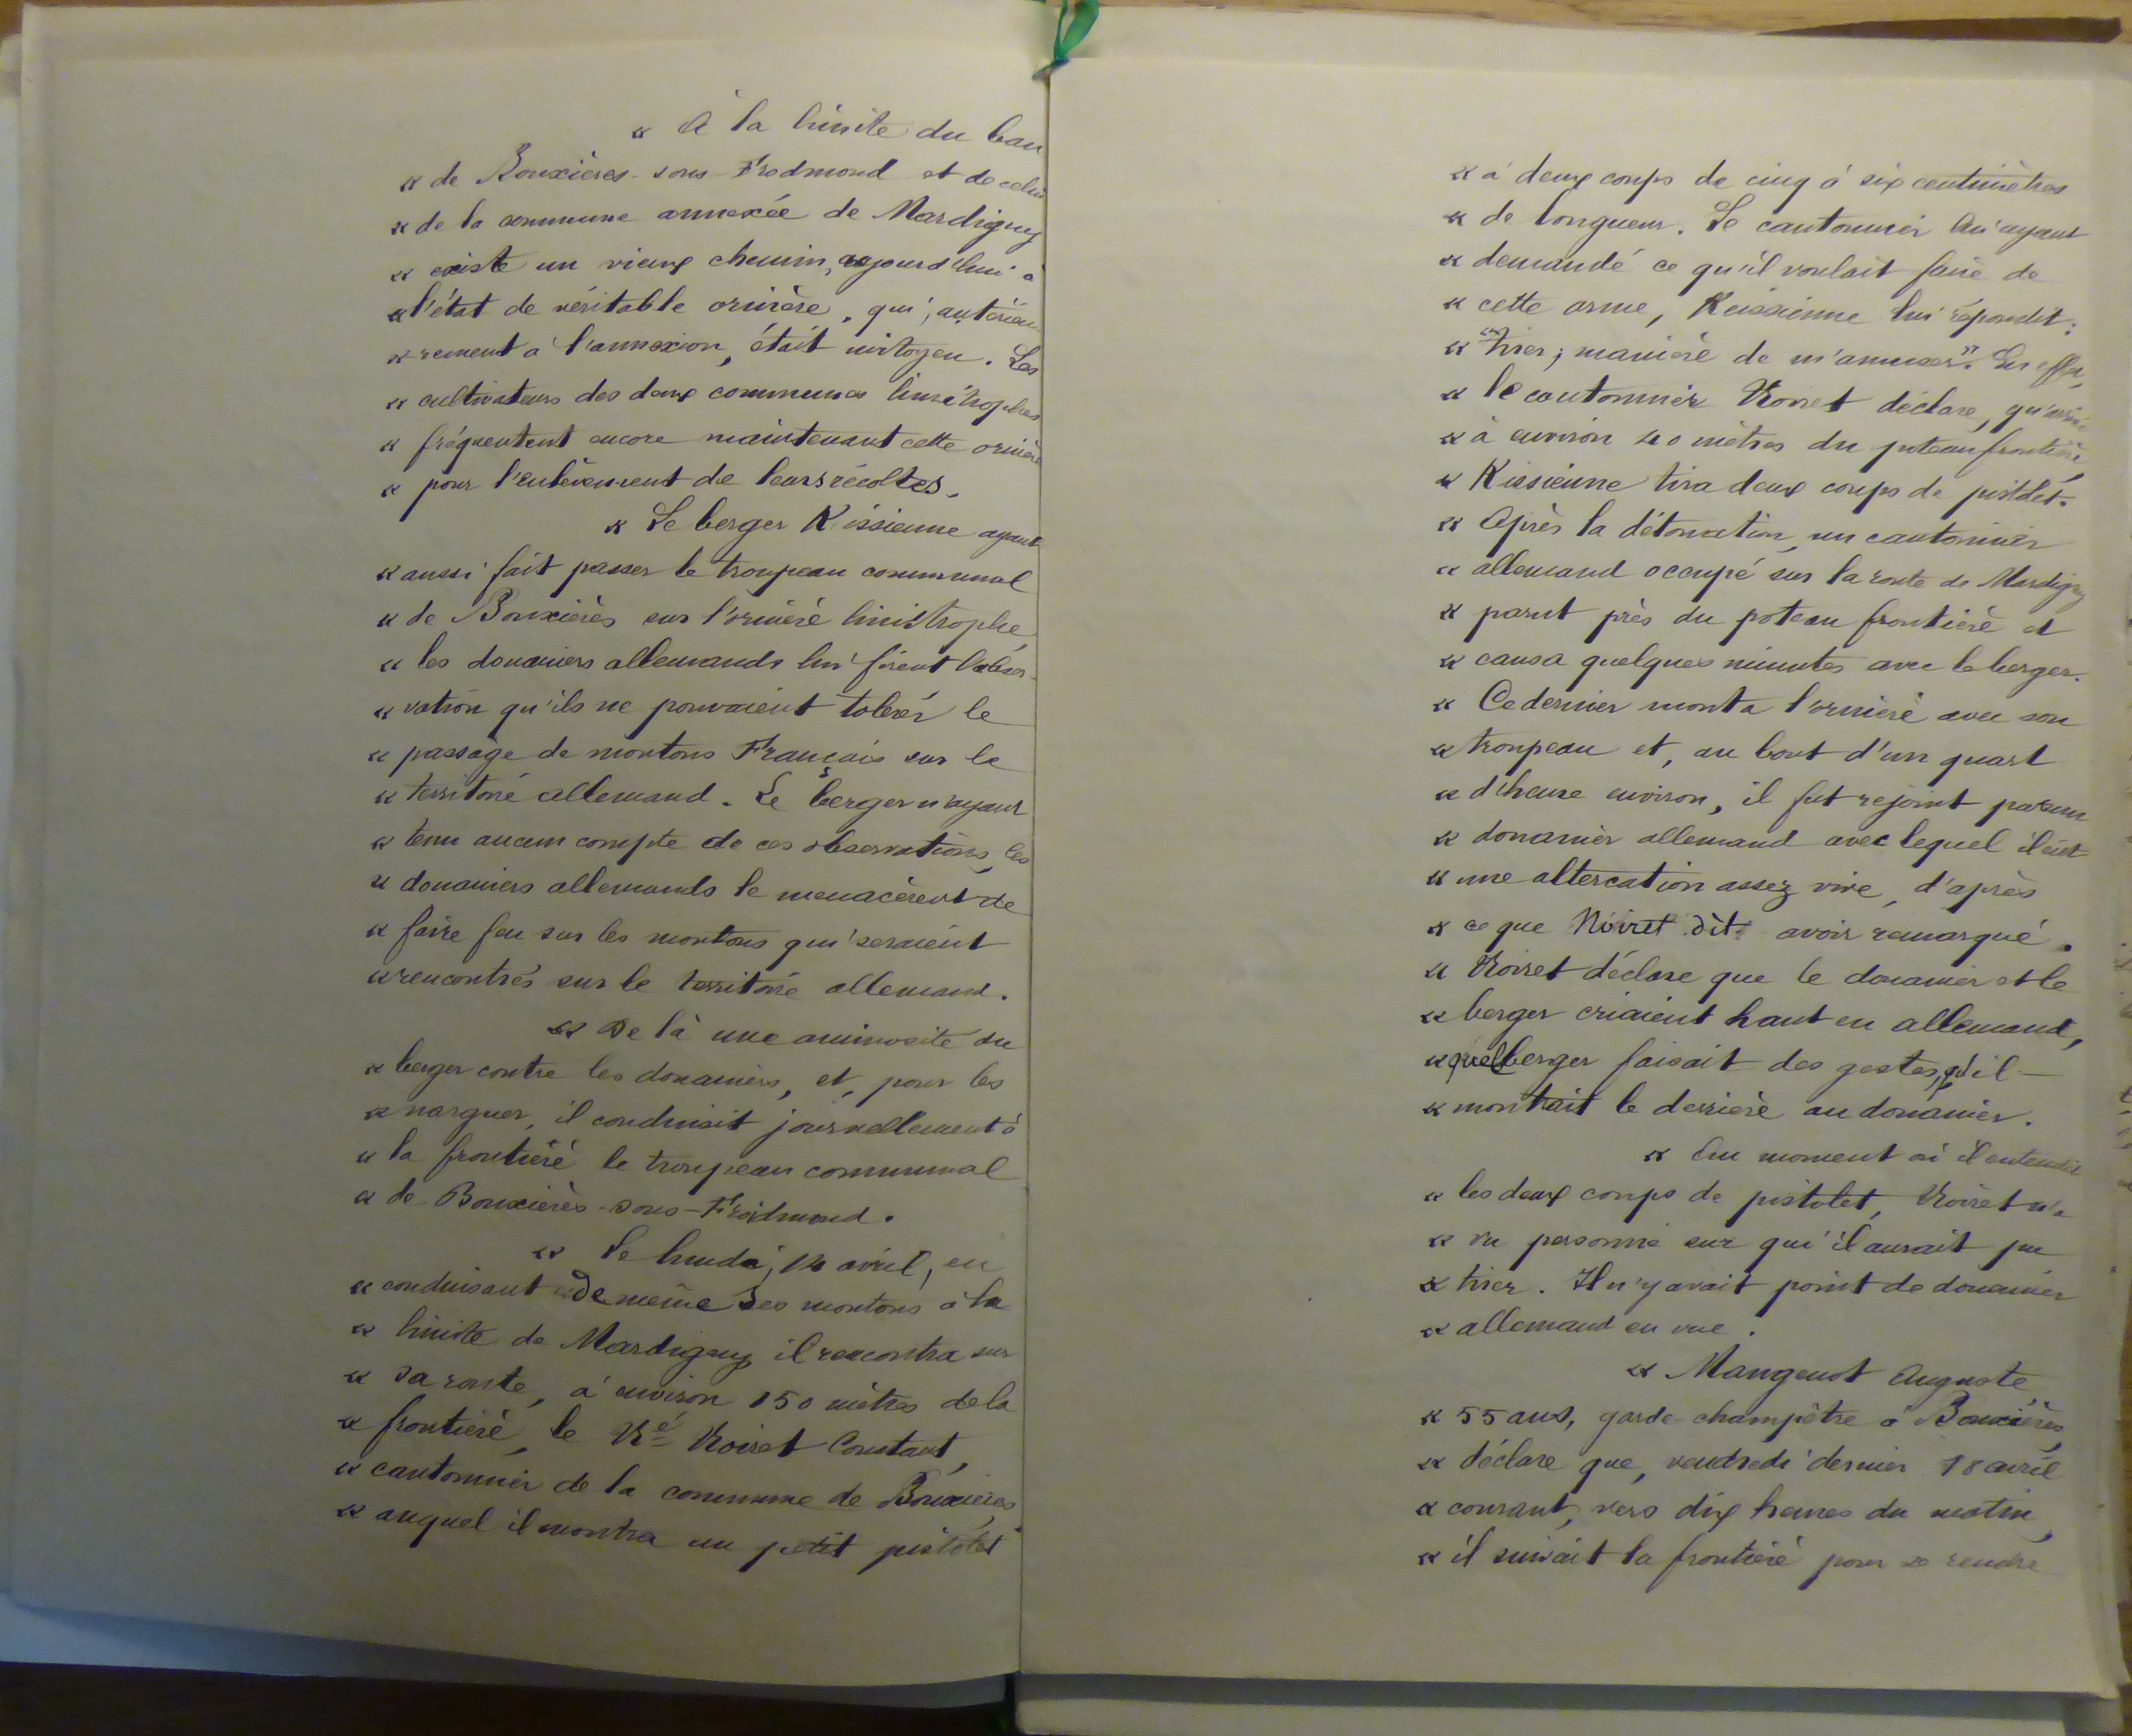 « À la limite du ban
« de Bouxières-sous-Froidmond et de celui
« de la commune annexée de Mardigny
« existe un vieux chemin, aujourd'hui à
« l'état de véritable ornière, qui, antérieu
« rement à l'annexion, était mitoyen. Les
« cultivateurs des deux communes limitrophes
« fréquentent encore maintenant cette ornière
« pour l'enlèvement de leurs récoltes.
« Le berger Kissienne ayant
« aussi fait passer le troupeau communal
« de Bouxières sur l'ornière limitrophe,
« les douaniers allemands lui firent l'obser-
« vation qu'ils ne pouvaient tolérer le
« passage de moutons Français sur le
« territoire allemand. Le berger n'ayant
« tenu aucun compte de ces observations, les
« douaniers allemands le menacèrent de
« faire feu sur les moutons qui seraient
« rencontrés sur le territoire allemand.
« De là une animosité du
« berger contre les douaniers, et, pour les
« narguer, il conduisit journellement à
« la frontière le troupeau communal
« de Bouxières-sous-Froidmond.
« Le lundi, 14 avril, en
« conduisant de même ses moutons à la
« limite de Mardigny, il rencontra sur
« sa route, à environ 150 mètres de la
« frontière, le Né Noiret Constant,
« cantonnier de la commune de Bouxières,
« auquel il montra un petit pistolet
« à deux coups de cinq à six centimètres
« de longueur. Le cantonnier lui ayant
« demandé ce qu'il voulait faire de
« cette arme, Keissienne lui répondit:
« "tirer; manière de m'amuser". En effet,
« le cantonnier Noiret déclare, qu'arrivé
« à environ 40 mètres du poteau frontière,
« Kissienne tira deux coups de pistolet.
« Après la détonation, un cantonnier
« allemand occupé sur la route de Mardigny
« parut près du poteau frontière et
« causa quelques minutes avec le berger.
« Ce dernier monta l'ornière avec son
« troupeau et, au bout d'un quart
« d'heure environ, il fut rejoint par un
« douanier allemand avec lequel il eut
« une altercation assez vive, d'après
« ce que Noiret dit avoir remarqué.
« Noiret déclare que le douanier et le
« berger criaient haut en allemand,
« que l berger faisait des gestes, qu'il
« montrait le derrière au douanier.
« Au moment où il entendit
« les deux coups de pistolet, Noiret n'a
« vu personne sur qui il aurait pu
« tirer. Il n'y avait point de douanier
« allemand en vue.
« Mangenot Auguste,
« 55 ans, garde-champêtre à Bouxières,
« déclare que, vendredi dernier 18 avril
« courant, vers dix heures du matin,
« il suivait la frontière pour se rendre